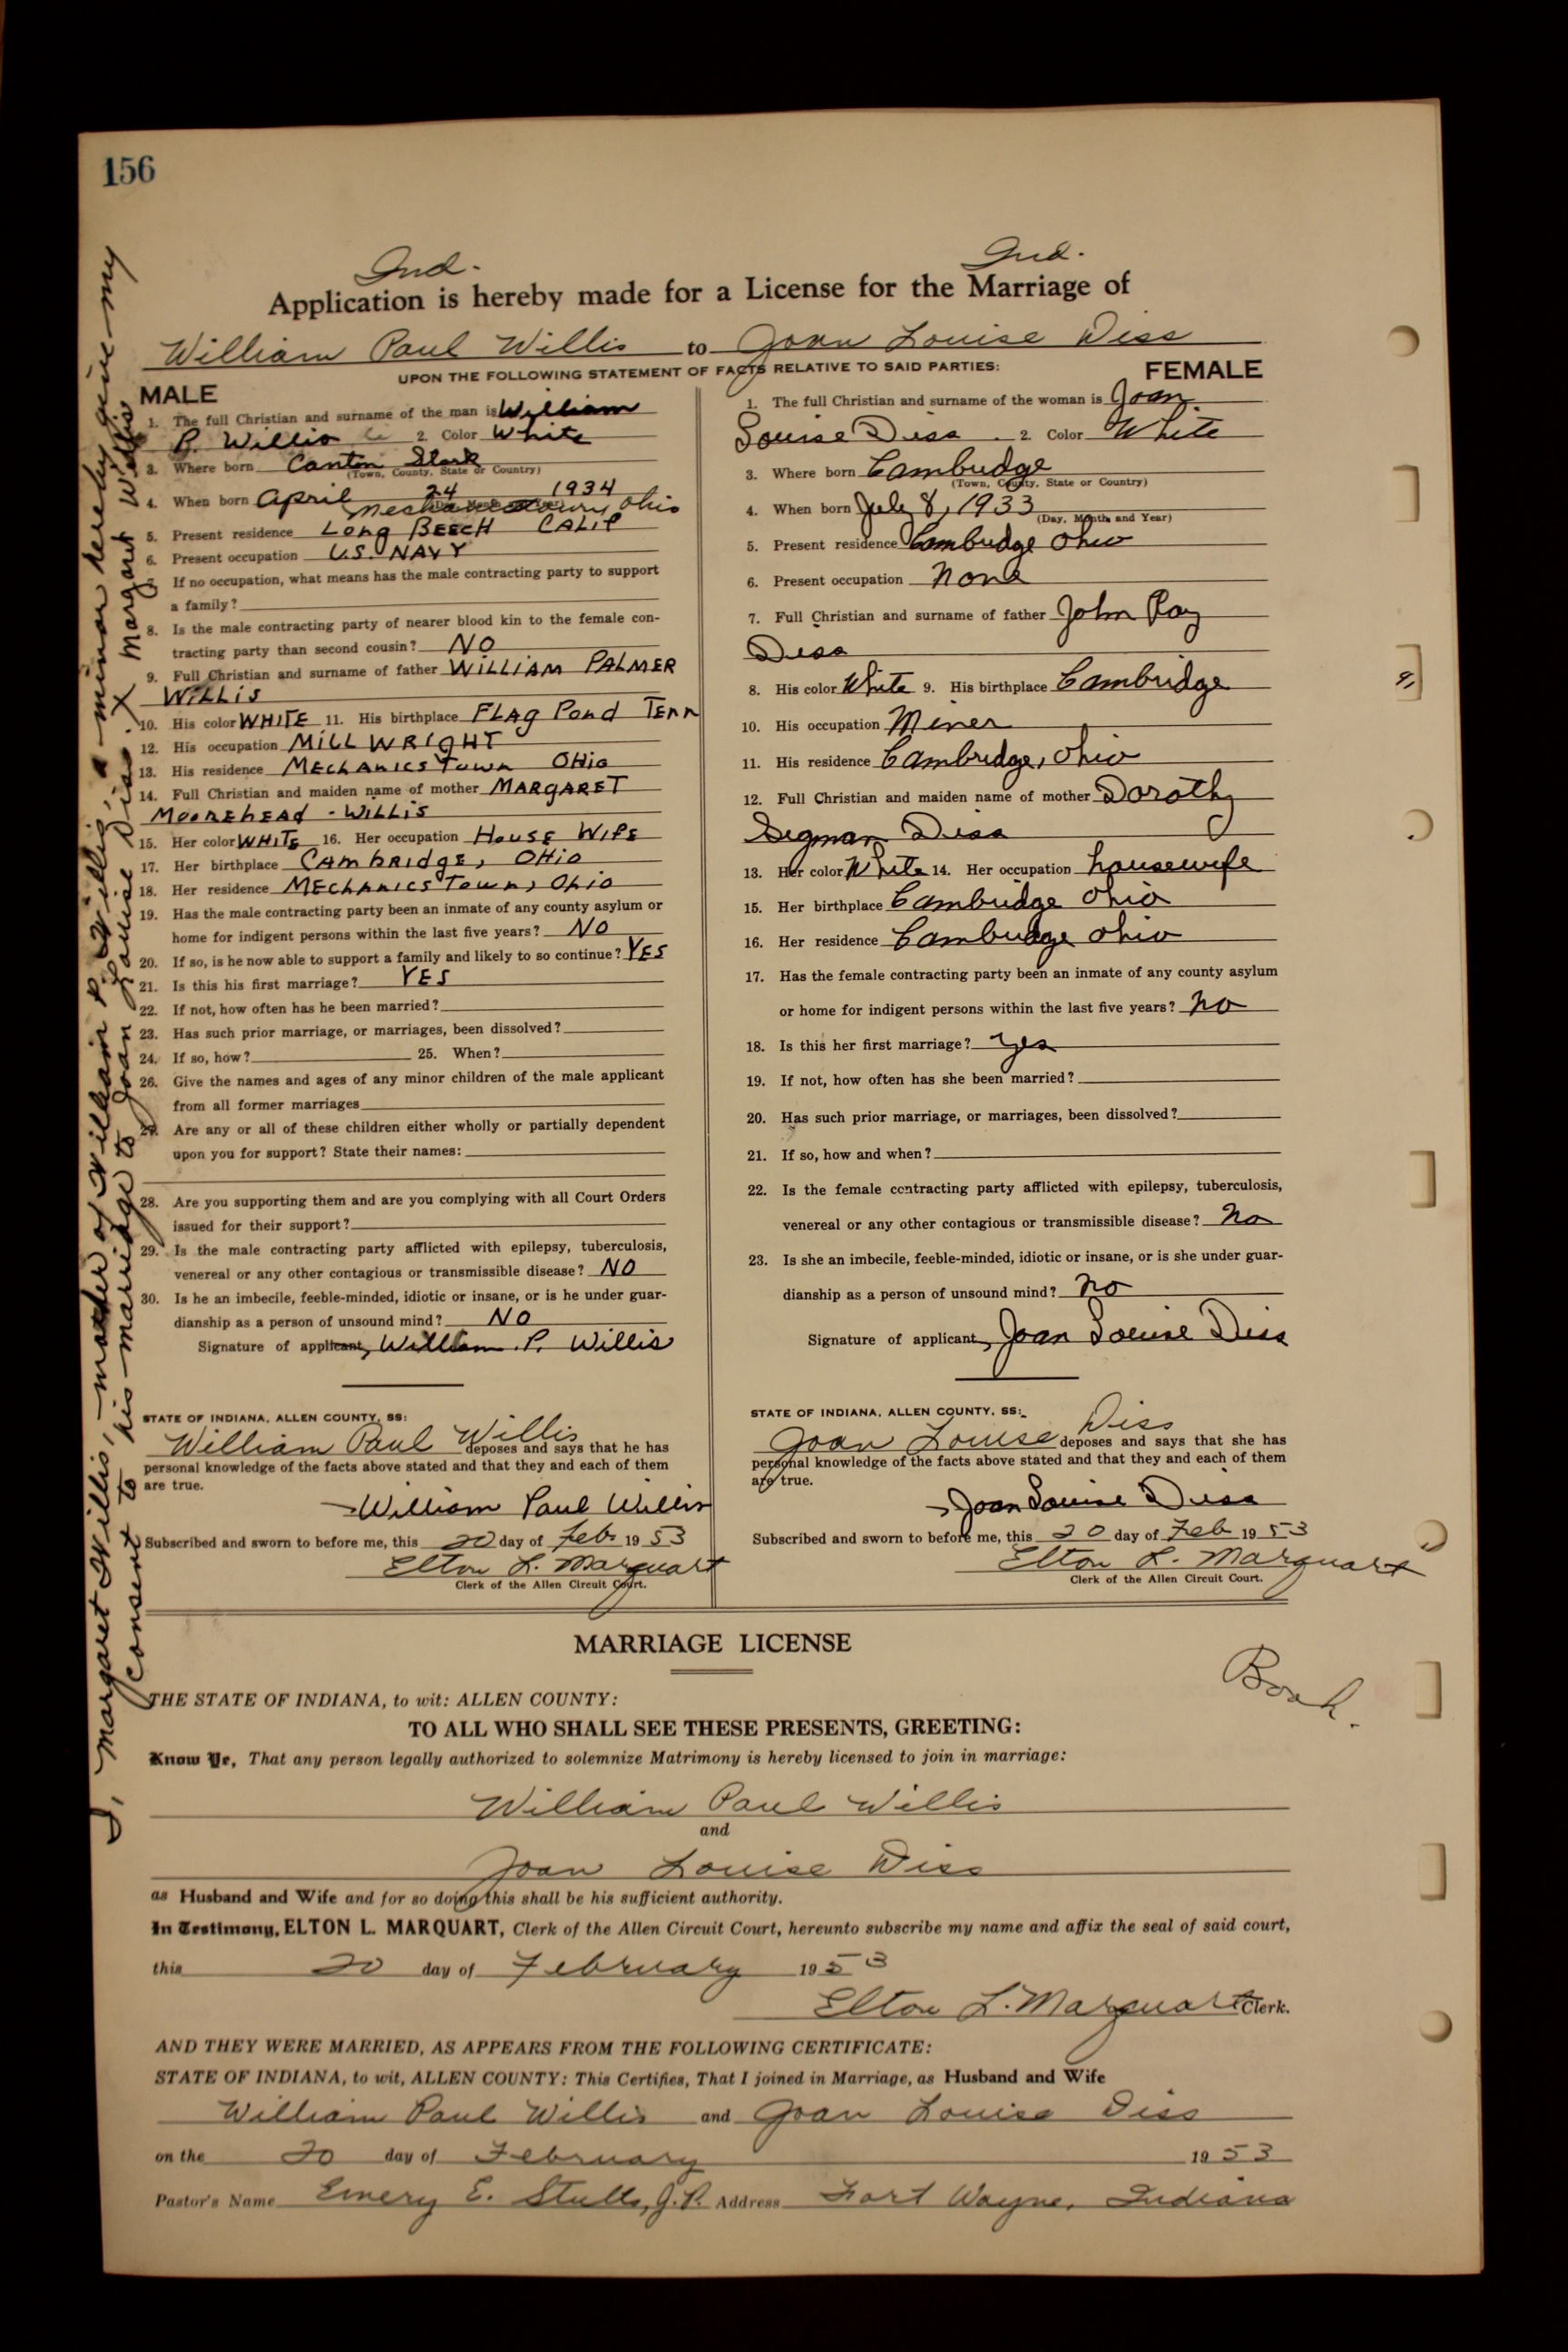 156
Ind. Ind.
Application is hereby made for a License for the Marriage of
William Paul Willis to Joan Louise Diss
UPON THE FOLLOWING STATEMENT OF FACTS RELATIVE TO SAID PARTIES:
MALE
1. The full Christian and surname of the man is William
P. Willis 2. Color White
3. Where born Canton Stark
(Town, County, State or Country)
4. When born April 24 1934
Mechanicstown, Ohio
5. Present residence Long BEECH CALIF
6. Present occupation U.S. NAVY
If no occupation, what means has the male contracting party to support
a family?
8. Is the male contracting party of nearer blood kin to the female con-
tracting party than second cousin? NO
9. Full Christian and surname of father WILLIAM PALMER
WILLIS
10. His color WHITE 11. His birthplace FLAg Pond TENN
12. His occupation MILLWRIGHT
13. His residence MEchANICSTown OHio
14. Full Christian and maiden name of mother MARgARET
MOOREhEAD - WILLIS
15. Her color WHITE 16. Her occupation HOUSE WIFE
17. Her birthplace CAMbRIdgE, OHio
18. Her residence MEchANICSTown, Ohio
19. Has the male contracting party been an inmate of any county asylum or
home for indigent persons within the last five years? NO
20. If so, is he now able to support a family and likely to so continue? YES
21. Is this his first marriage? YES
22. If not, how often has he been married?
23. Has such prior marriage, or marriages, been dissolved?
24. If so, how? 25. When?
26. Give the names and ages of any minor children of the male applicant
from all former marriages
27. Are any or all of these children either wholly or partially dependent
upon you for support? State their names:
28. Are you supporting them and are you complying with all Court Orders
issued for their support?
29. Is the male contracting party afflicted with epilepsy, tuberculosis,
venereal or any other contagious or transmissible disease? NO
30. Is he an imbecile, feeble-minded, idiotic or insane, or is he under guar-
dianship as a person of unsound mind? NO
Signature of applicant, William P. Willis
STATE OF INDIANA, ALLEN COUNTY, SS:
William Paul Willis deposes and says that he has
personal knowledge of the facts above stated and that they and each of them
are true.
William Paul Willis
Subscribed and sworn to before me, this 20 day of Feb. 19 53
Elton L. Marquart
Clerk of the Allen Circuit Court.
FEMALE
1. The full Christian and surname of the woman is Joan
Louise Diss. 2. Color White
3. Where born Cambridge
(Town, County, State or Country)
4. When born July 8, 1933
(Day, Month and Year)
5. Present residence Cambridge Ohio
6. Present occupation None
7. Full Christian and surname of father John Ray
Diss
8. His color White 9. His birthplace Cambridge
10. His occupation Miner
11. His residence Cambridge, Ohio
12. Full Christian and maiden name of mother Dorothy
Segman Diss
13. Her color White 14. Her occupation housewife
15. Her birthplace Cambridge Ohio
16. Her residence Cambridge Ohio
17. Has the female contracting party been an inmate of any county asylum
or home for indigent persons within the last five years? no
18. Is this her first marriage? yes
19. If not, how often has she been married?
20. Has such prior marriage, or marriages, been dissolved?
21. If so, how and when?
22. Is the female contracting party afflicted with epilepsy, tuberculosis,
venereal or any other contagious or transmissible disease? no
23. Is she an imbecile, feeble-minded, idiotic or insane, or is she under guar-
dianship as a person of unsound mind? no
Signature of applicant, Joan Louise Diss
STATE OF INDIANA, ALLEN COUNTY, SS:
Joan Louise Diss deposes and says that she has
personal knowledge of the facts above stated and that they and each of them
are true.
Joan Louise Diss
Subscribed and sworn to before me, this 20 day of Feb 19 53
Elton L. Marquart
Clerk of the Allen Circuit Court.
I, Margaret Willis, mother of William P. Willis, a minor hereby give my
consent to his marriage to Joan Louise Diss. X Margaret Willis
MARRIAGE LICENSE
THE STATE OF INDIANA, to wit: ALLEN COUNTY:
TO ALL WHO SHALL SEE THESE PRESENTS, GREETING:
Know Ye, That any person legally authorized to solemnize Matrimony is hereby licensed to join in marriage:
William Paul Willis
and
Joan Louise Diss
as Husband and Wife and for so doing this shall be his sufficient authority.
In Testimony, ELTON L. MARQUART, Clerk of the Allen Circuit Court, hereunto subscribe my name and affix the seal of said court,
this 20 day of February 19 53
Elton L. Marquart Clerk.
AND THEY WERE MARRIED, AS APPEARS FROM THE FOLLOWING CERTIFICATE:
STATE OF INDIANA, to wit, ALLEN COUNTY: This Certifies, That I joined in Marriage, as Husband and Wife
William Paul Willis and Joan Louise Diss
on the 20 day of February 19 53
Pastor's Name Emery E. Stults, J.P. Address Fort Wayne, Indiana